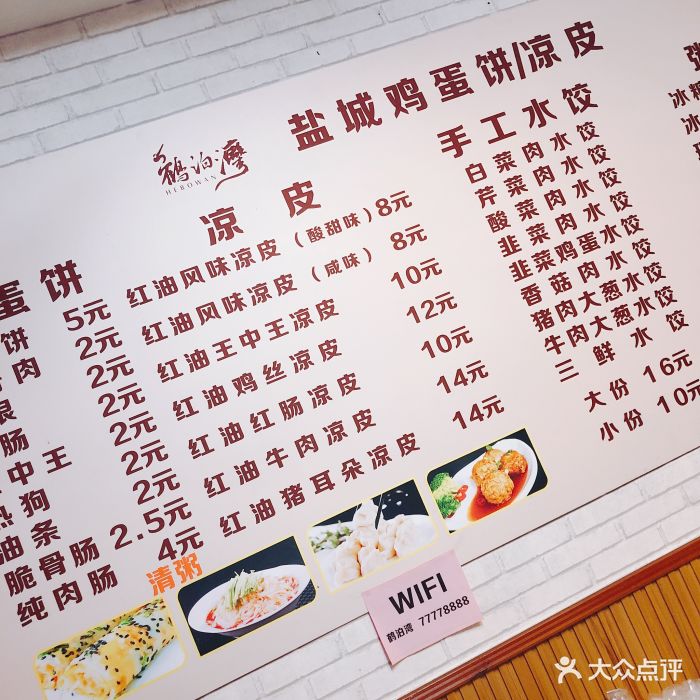 盐城鸡蛋饼/凉皮
鹤泊湾
HEBOWAN
蛋饼
饼 5元
肉 2元
2元
肠 2元
中王 2元
热狗 2元
油条 2元
脆骨肠 2.5元
纯肉肠 4元
清粥
凉皮
红油风味凉皮（酸甜味）8元
红油风味凉皮（咸味）8元
红油王中王凉皮 10元
红油鸡丝凉皮 12元
红油红肠凉皮 10元
红油牛肉凉皮 14元
红油猪耳朵凉皮 14元
手工水饺
白菜肉水饺
芹菜肉水饺
酸菜肉水饺
韭菜肉水饺
韭菜鸡蛋水饺
香菇肉水饺
猪肉大葱水饺
牛肉大葱水饺
三鲜水饺
大份 16元
小份 10元
冰糖
冰
WIFI
鹤泊湾 77778888
大众点评